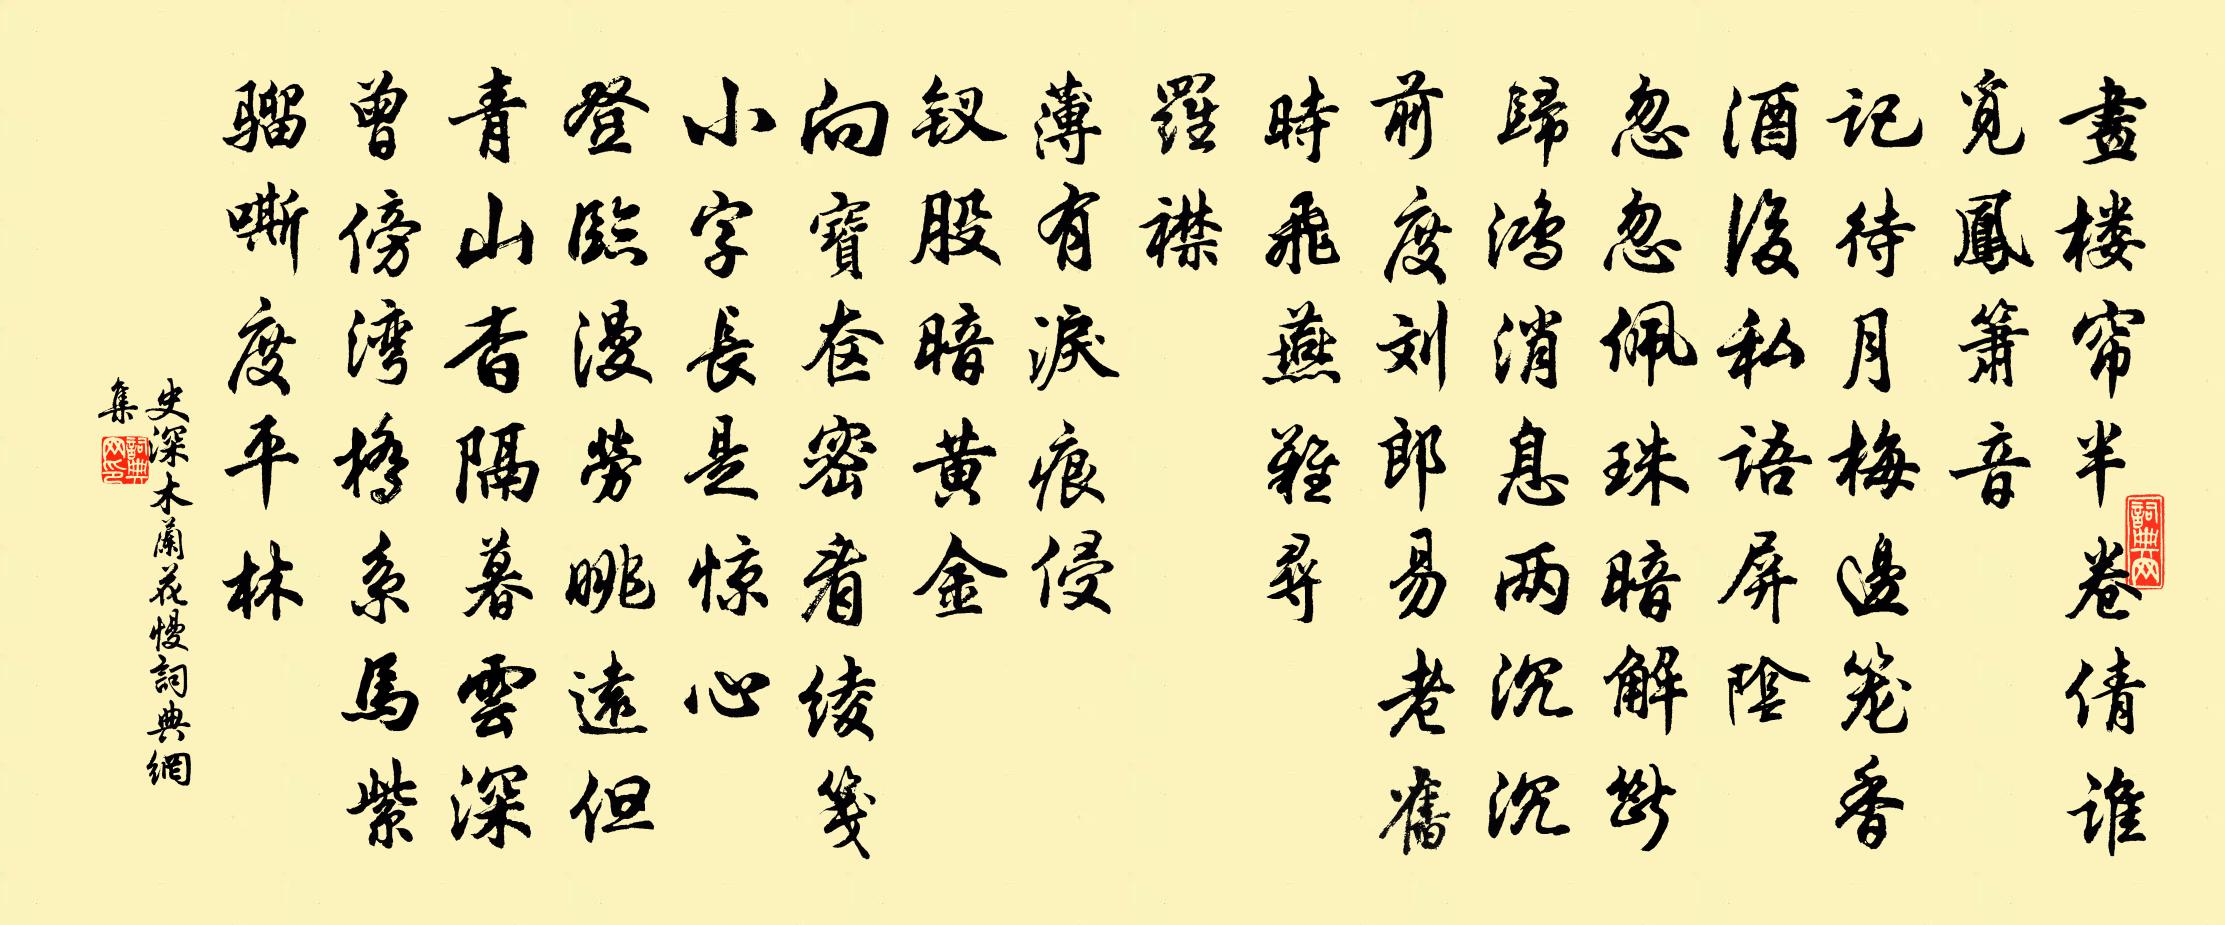 畫楼帘半卷倩谁
觅鳳箫音
记待月梅邊笼香
酒後私语屏陰
忽忽佩珠暗解斷
歸鸿消息两沉沉
前度刘郎易老舊
時飛燕難尋
羅襟
薄有淚痕侵
钗股暗黄金
向寶奁密看绫笺
小字長是惊心
登臨漫勞眺遠但
青山杳隔暮雲深
曾傍湾橋系馬紫
骝嘶度平林
史深木蘭花慢詞典網
集
詞典网
詞典网印